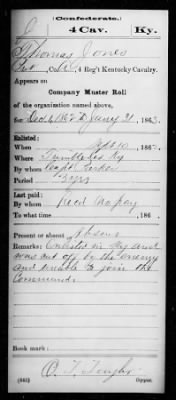 J
(Confederate.)
4 Cav. Ky.
Thomas Jones
Pvt, Co. , 4 Reg't Kentucky Cavalry.
Appears on
Company Muster Roll
of the organization named above,
for Dec 4 1862 to Jany 31, 1863.
Enlisted:
When 10, 186
Where Trimble Co Ky
By whom Capt
Period 3 yrs
Last paid:
By whom Recd no pay
To what time , 186 .
Present or absent Absent
Remarks: Enlisted in Ky and
was cut off by the enemy
and unable to join the
Command.
Book mark:
(642) Copyist.